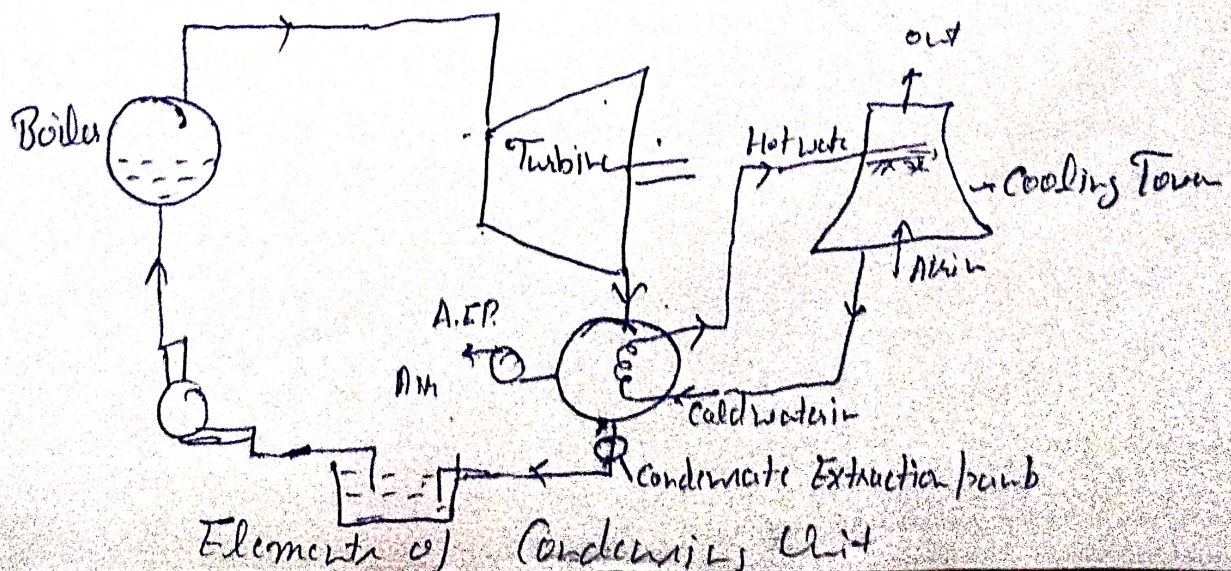 out
Boiler
Turbine
Hot wate
Cooling Tower
Air in
A.E.P.
Air
Cold water in
Condensate Extraction pumb
Elements of Condensing Unit